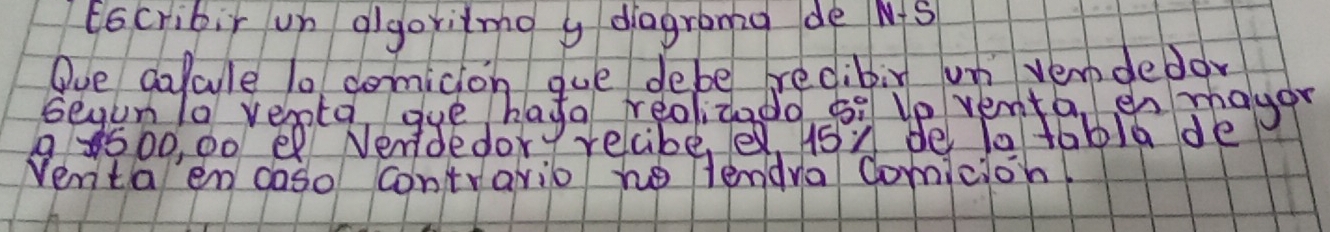 Escribir un algoritmo y diagrama de N-S
Que calcule la comición que debe recibir un vendedor
segun la venta que haya realizado si la venta es mayor
a $500,00 el Vendedor recibe el 15% de la tabla de
Venta en caso contrario no tendra Comición.